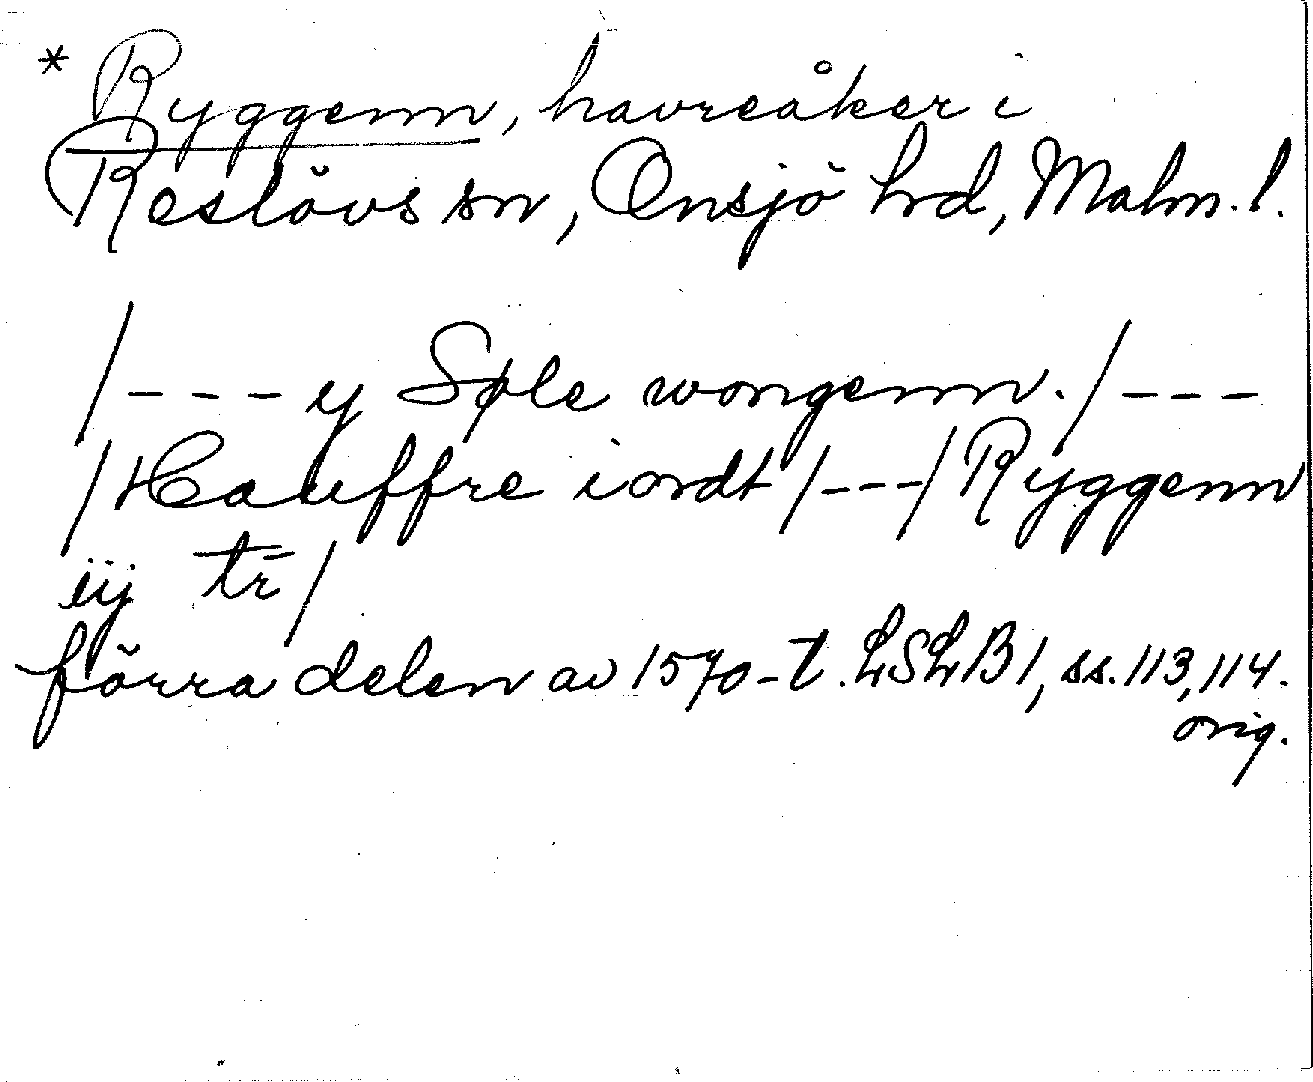 * Ryggenn, havreåker i
Reslövs sn, Onsjö hd, Malm. l.
/--- y Søle wongenn./---
/Hauffre iordt/---/Ryggenn
iij tr̄/
förra delen av 1570-t. LSLB1, ss. 113, 114.
orig.